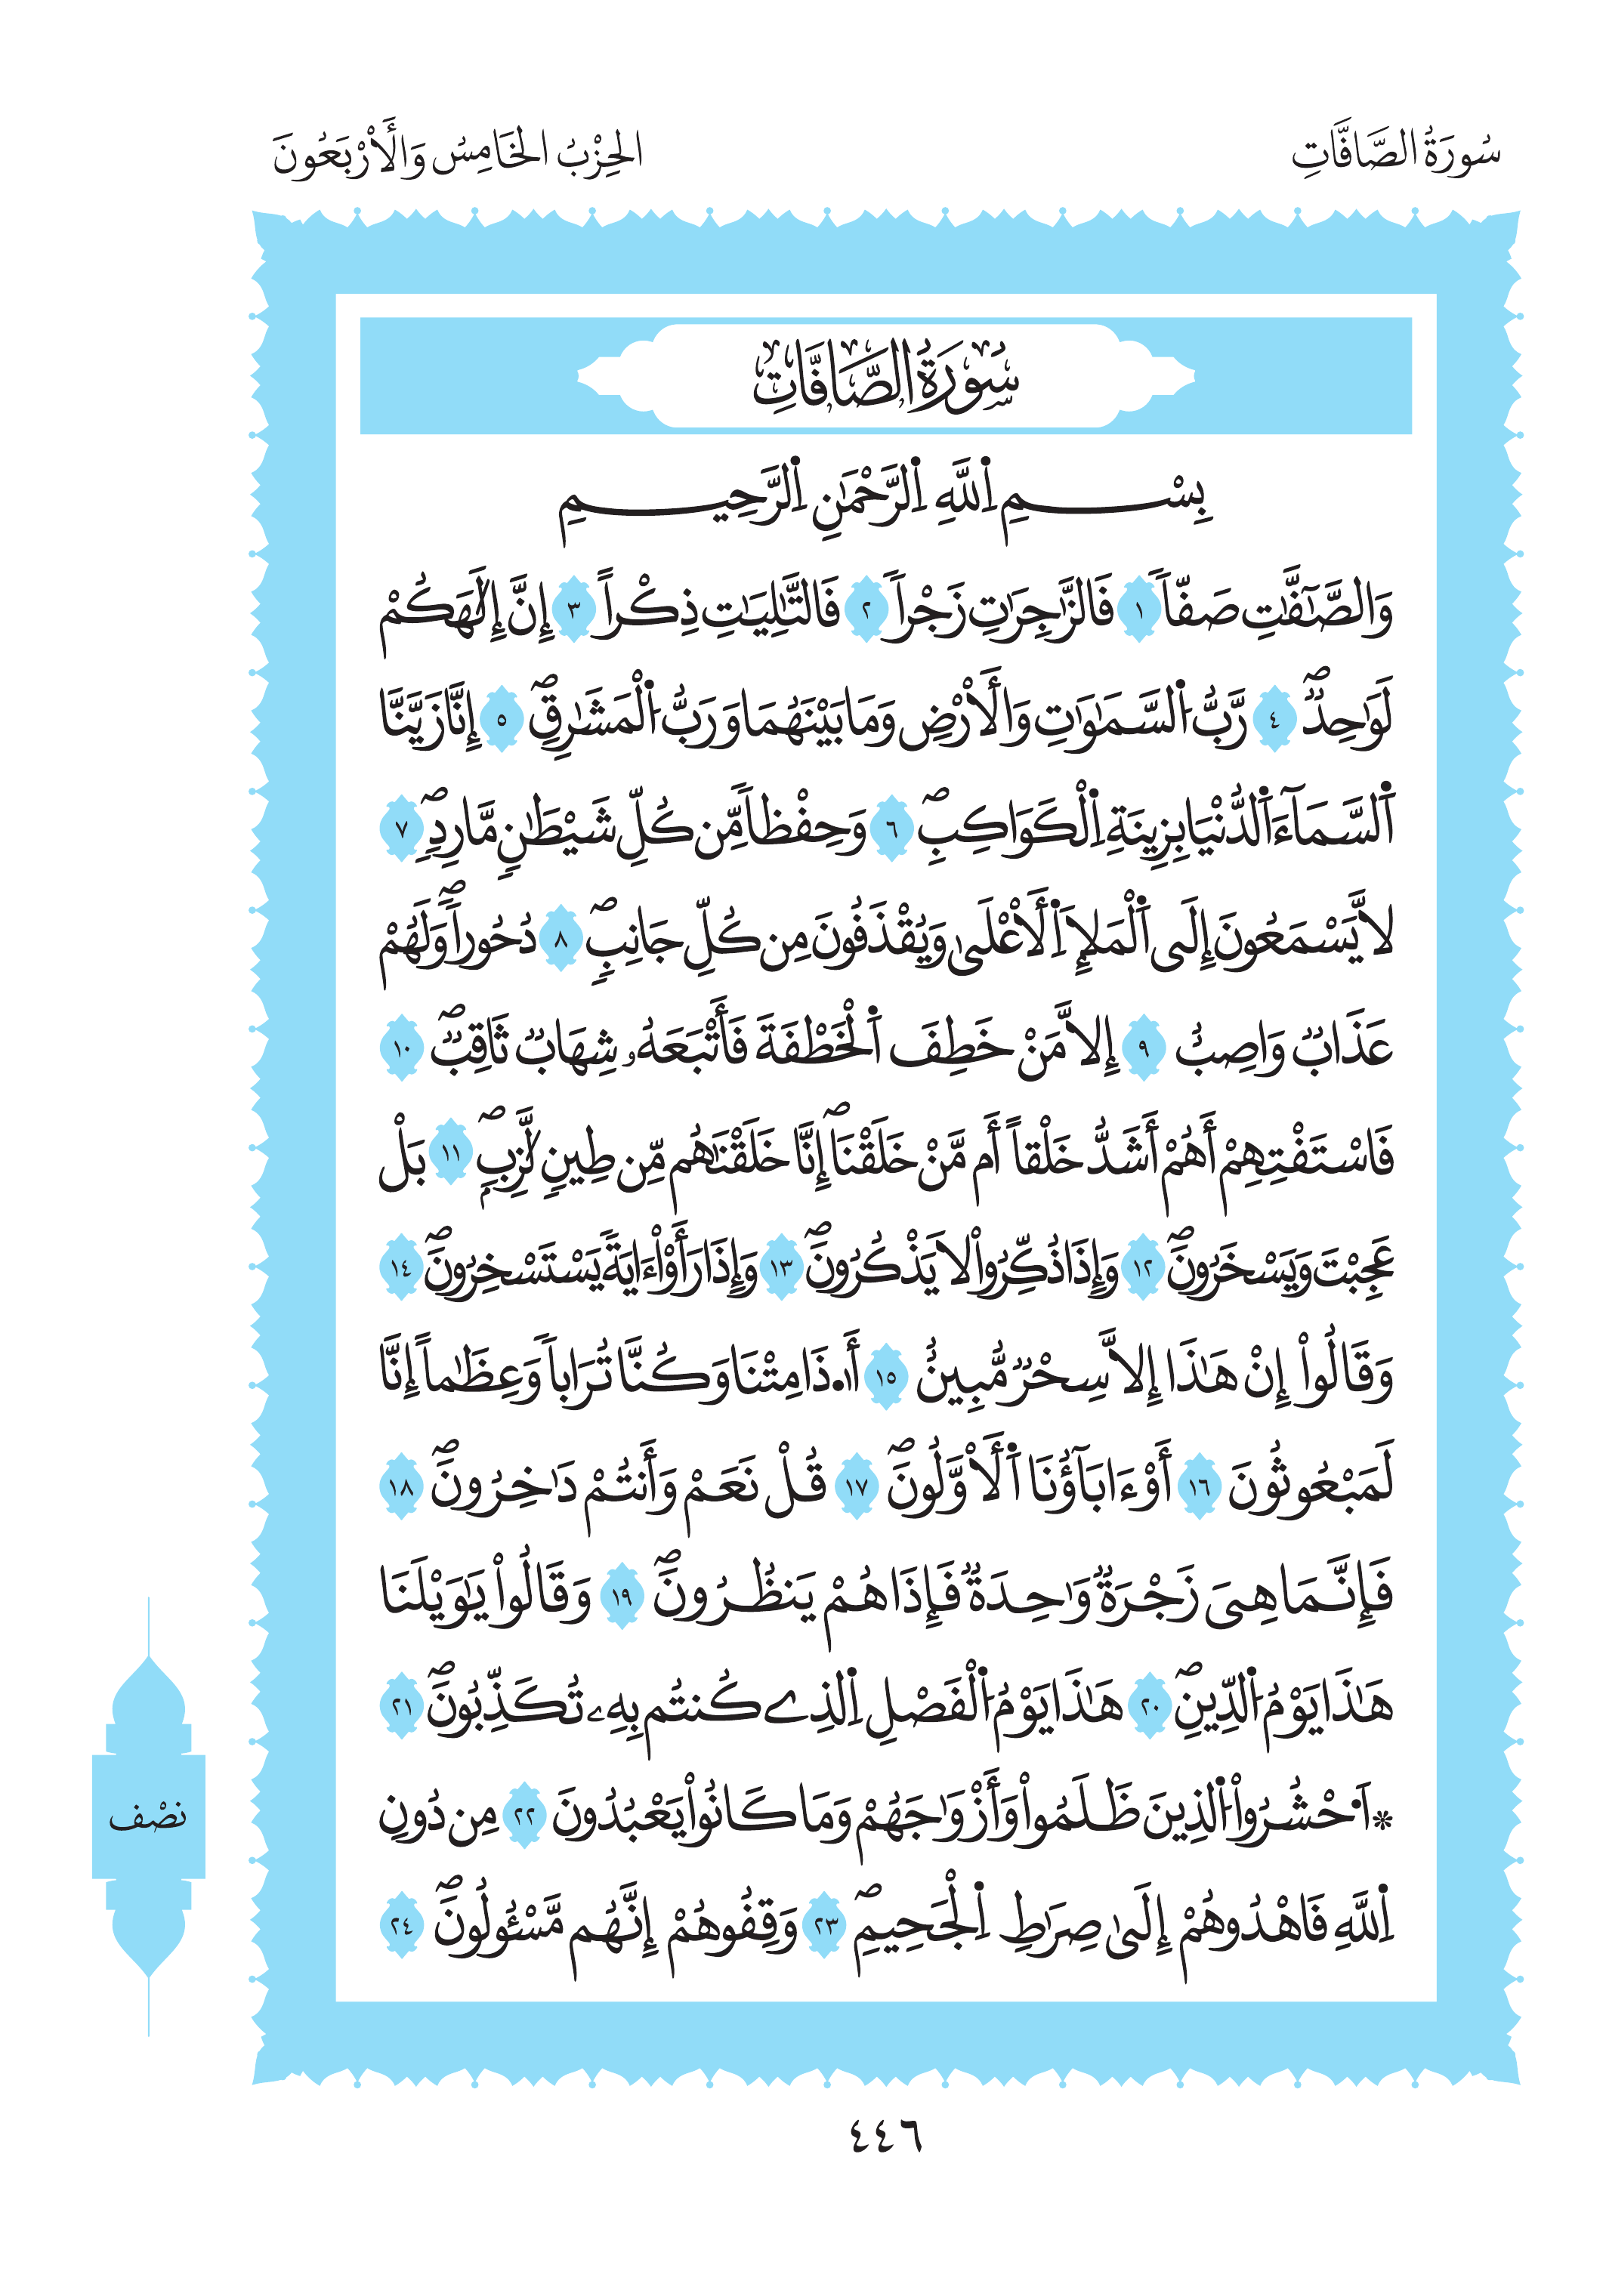 سُورَةُ الصَّافَّاتِ
الحِزْبُ الخَامِسُ وَالأَرْبَعُونَ
سُورَةُ الصَّافَّاتِ
بِسْمِ اِ۬للَّهِ اِ۬لرَّحْمَٰنِ اِ۬لرَّحِيمِ
وَالصَّٰٓفَّٰتِ صَفّاٗ ١ فَالزَّٰجِرَٰتِ زَجْراٗ ٢ فَالتَّٰلِيَٰتِ ذِكْراً ٣ إِنَّ إِلَٰهَكُمْ
لَوَٰحِدٞۖ ٤ رَّبُّ اُ۬لسَّمَٰوَٰتِ وَالْأَرْضِ وَمَا بَيْنَهُمَا وَرَبُّ اُ۬لْمَشَٰرِقِۖ ٥ إِنَّا زَيَّنَّا
اَ۬لسَّمَآءَ اَ۬لدُّنْيَا بِزِينَةِ اِ۬لْكَوَاكِبِۖ ٦ وَحِفْظاٗ مِّن كُلِّ شَيْطَٰنٖ مَّارِدٖۖ ٧
لَّا يَسْمَعُونَ إِلَى اَ۬لْمَلَإِ اِ۬لْأَعْلَىٰ وَيُقْذَفُونَ مِن كُلِّ جَانِبٖۖ ٨ دُحُوراٗۖ وَلَهُمْ
عَذَابٞ وَاصِبٌ ٩ إِلَّا مَنْ خَطِفَ اَ۬لْخَطْفَةَ فَأَتْبَعَهُۥ شِهَابٞ ثَاقِبٞۖ ١٠
فَاسْتَفْتِهِمْ أَهُمْ أَشَدُّ خَلْقاً أَم مَّنْ خَلَقْنَاۖ إِنَّا خَلَقْنَٰهُم مِّن طِينٖ لَّٰزِبِۢۖ ١١ بَلْ
عَجِبْتَ وَيَسْخَرُونَۖ ١٢ وَإِذَا ذُكِّرُواْ لَا يَذْكُرُونَۖ ١٣ وَإِذَا رَأَوْاْ ءَايَةٗ يَسْتَسْخِرُونَۖ ١٤
وَقَالُواْ إِنْ هَٰذَا إِلَّا سِحْرٞ مُّبِينٌ ١٥ أَ۟ذَا مِتْنَا وَكُنَّا تُرَاباٗ وَعِظَٰماً إِنَّا
لَمَبْعُوثُونَ ١٦ أَوْ ءَابَآؤُنَا اَ۬لْأَوَّلُونَۖ ١٧ قُلْ نَعَمْ وَأَنتُمْ دَٰخِرُونَۖ ١٨
فَإِنَّمَا هِيَ زَجْرَةٞ وَٰحِدَةٞ فَإِذَا هُمْ يَنظُرُونَۖ ١٩ وَقَالُواْ يَٰوَيْلَنَا
هَٰذَا يَوْمُ اُ۬لدِّينِۖ ٢٠ هَٰذَا يَوْمُ اُ۬لْفَصْلِ اِ۬لذِے كُنتُم بِهِۦ تُكَذِّبُونَۖ ٢١
* اَ۟حْشُرُواْ اُ۬لذِينَ ظَلَمُواْ وَأَزْوَٰجَهُمْ وَمَا كَانُواْ يَعْبُدُونَ ٢٢ مِن دُونِ
نصْف
اِ۬للَّهِ فَاهْدُوهُمْ إِلَىٰ صِرَٰطِ اِ۬لْجَحِيمِۖ ٢٣ وَقِفُوهُمْ إِنَّهُم مَّسْـُٔولُونَۖ ٢٤
٤٤٦